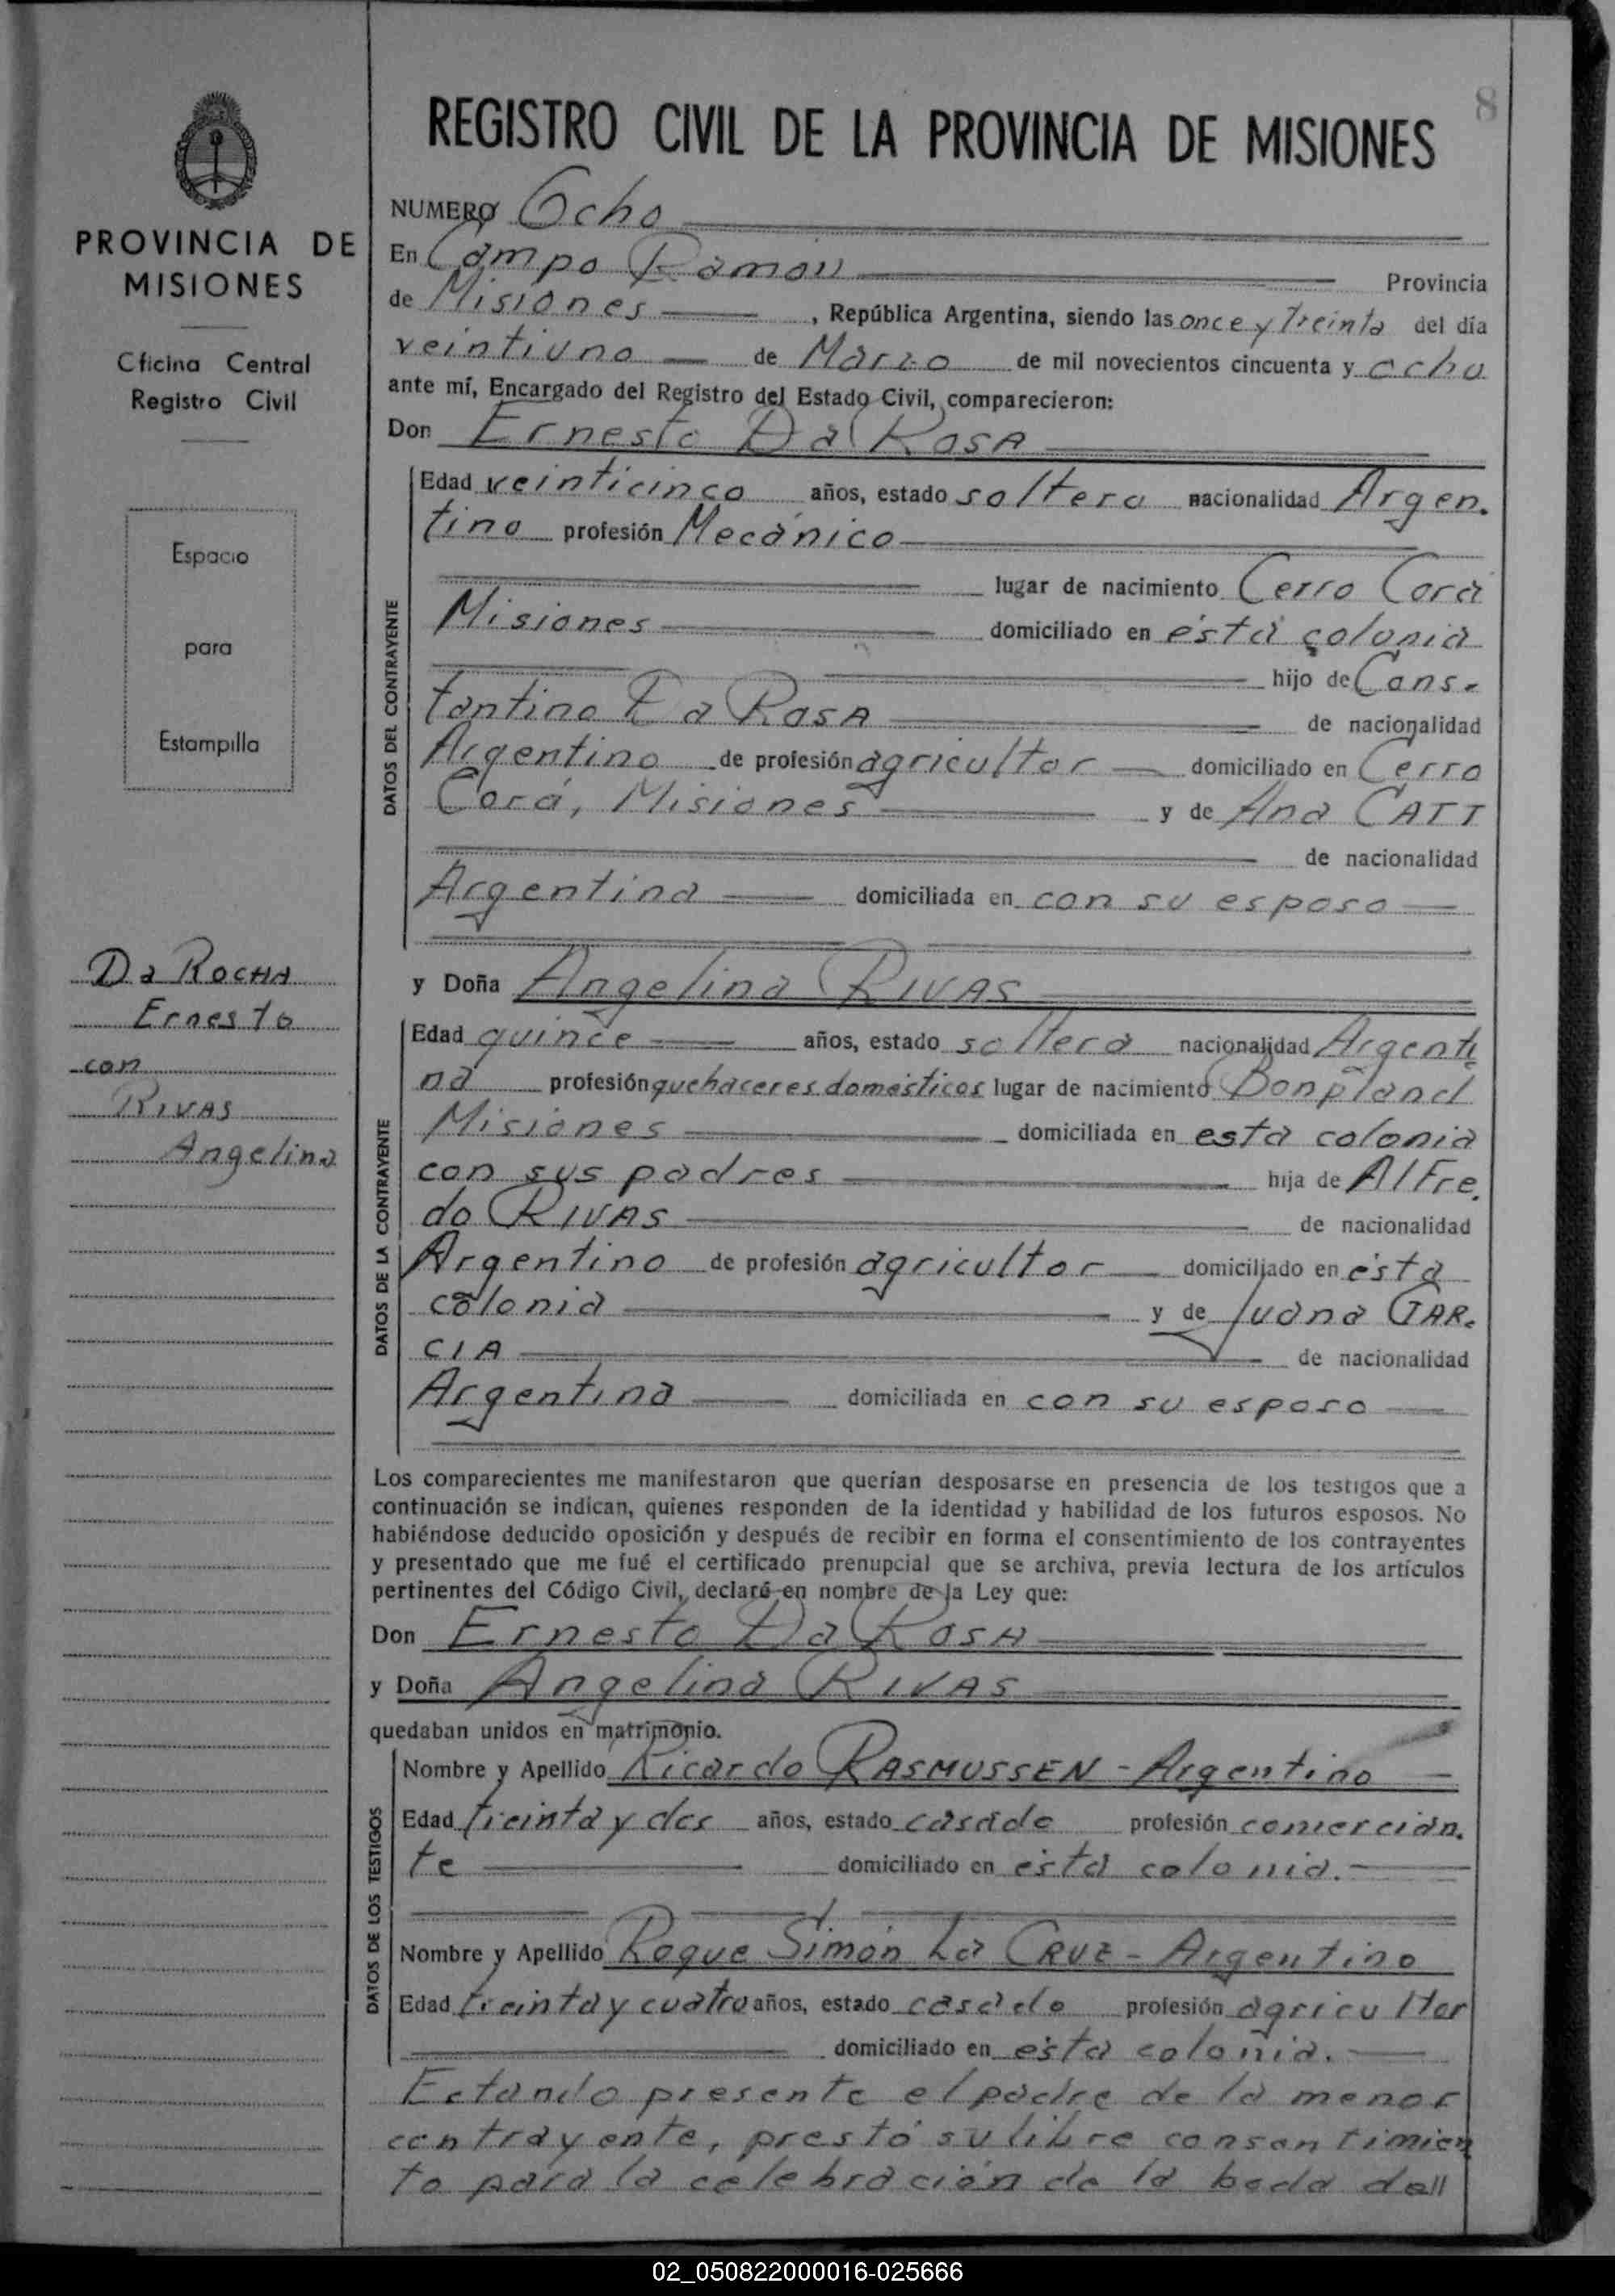 8
REGISTRO CIVIL DE LA PROVINCIA DE MISIONES
PROVINCIA DE
MISIONES
Oficina Central
Registro Civil
Espacio
para
Estampilla
Da ROCHA
Ernesto
con
RIVAS
Angelina
NUMERO Ocho
En Campo Ramon Provincia
de Misiones , República Argentina, siendo las once y treinta del día
veintiuno de Marzo de mil novecientos cincuenta y ocho
ante mí, Encargado del Registro del Estado Civil, comparecieron:
Don Ernesto Da ROSA
DATOS DEL CONTRAYENTE
Edad veinticinco años, estado soltero nacionalidad Argen.
tino profesión Mecánico
lugar de nacimiento Cerro Corá
Misiones domiciliado en ésta colonia
hijo de Cons.
tantino Da ROSA de nacionalidad
Argentino de profesión agricultor domiciliado en Cerro
Corá, Misiones y de Ana CATT
de nacionalidad
Argentina domiciliada en con su esposo
y Doña Angelina RIVAS
DATOS DE LA CONTRAYENTE
Edad quince años, estado soltera nacionalidad Argenti
na profesión quehaceres domésticos lugar de nacimiento Bonpland
Misiones domiciliada en esta colonia
con sus padres hija de Alfre.
do RIVAS de nacionalidad
Argentino de profesión agricultor domiciliado en ésta
colonia y de Juana GAR.
CIA de nacionalidad
Argentina domiciliada en con su esposo
Los comparecientes me manifestaron que querían desposarse en presencia de los testigos que a
continuación se indican, quienes responden de la identidad y habilidad de los futuros esposos. No
habiéndose deducido oposición y después de recibir en forma el consentimiento de los contrayentes
y presentado que me fué el certificado prenupcial que se archiva, previa lectura de los artículos
pertinentes del Código Civil, declaré en nombre de la Ley que:
Don Ernesto Da ROSA
y Doña Angelina RIVAS
quedaban unidos en matrimonio.
DATOS DE LOS TESTIGOS
Nombre y Apellido Ricardo RASMUSSEN - Argentino
Edad treinta y dos años, estado casado profesión comercian.
te domiciliado en ésta colonia.
Nombre y Apellido Roque Simón La CRUZ - Argentino
Edad treinta y cuatro años, estado casado profesión agricultor
domiciliado en ésta colonia.
Estando presente el padre de la menor
contrayente, prestó su libre consentimien
to para la celebración de la boda de//
02_050822000016-025666